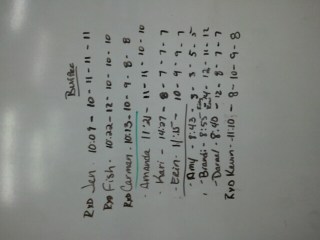 Buffee
RxD Jen 10:09 - 10 - 11 - 11 - 11
RxD Fish. 10:22 - 12 - 10 - 10 - 10
RxD Carmen. 10:13 - 10 - 9 - 8 - 8
· Amanda 11:21 - 11 - 11 - 10 - 10
· Kari - 14:27 - 8 - 7 - 7 - 7
· Erin. 11:15 - 10 - 9 - 9 - 7
· Amy - 8:43 - 9 - 3 - 5 - 5
· Brandi - 8:55 - 12 - 11 - 12
- 8:40 - 12 - 8 - 7 - 7
RxD Kevin - 11:10 - 8 - 10 - 9 - 8